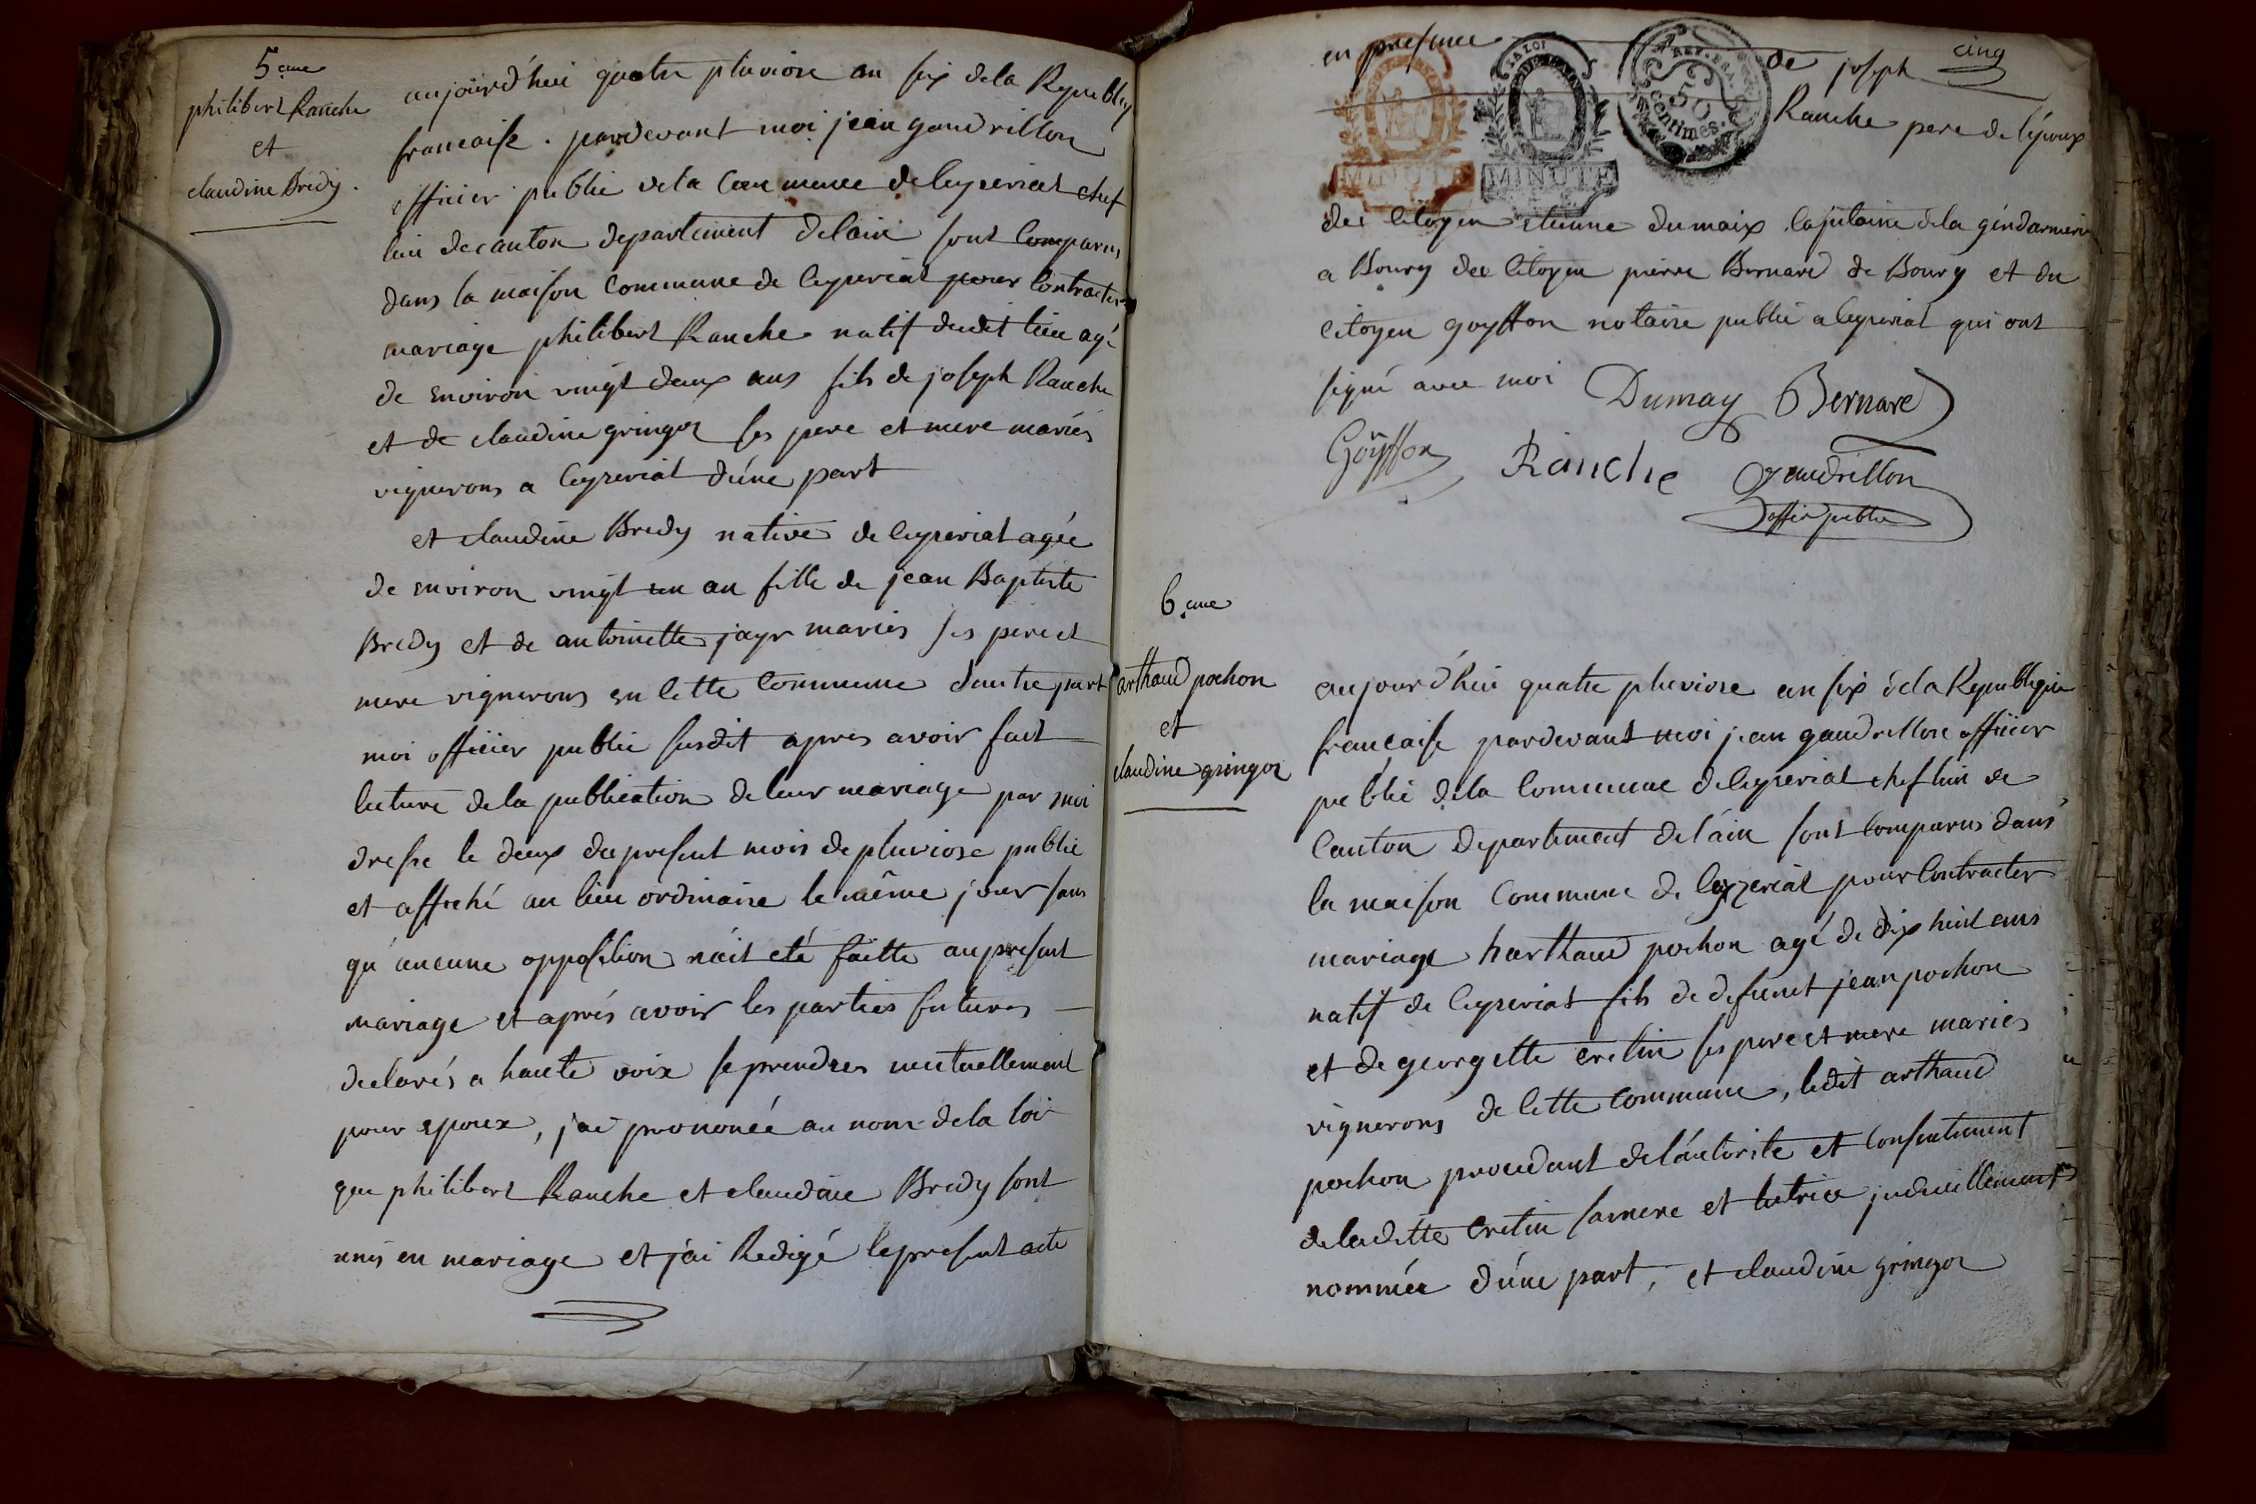 5.eme
philibert Ranche
et
claudine Bredy.
aujourd'hui quatre pluviose an six dela Republiq
francaise. pardevant moi jean gaudrillon
officier public dela Commune de Ceyzeriat chef
lieu de canton departement delain sont comparus
dans la maison Commune de Ceyzeriat pour Contracter
mariage philibert Ranche natif dudit lieu agé
de environ vingt deux ans fils de joseph Ranche
et de claudine gringoz ses pere et mere mariés
vignerons a Ceyzeriat d'úne part
et claudine Bredy native de Ceyzeriat agée
de environ vingt un an fille de jean Baptiste
Bredy et de antoinette jayr mariés ses pere et
mere vignerons en Cette Commune d'autre part
moi officier public susdit apres avoir fait
lecture dela publication de leur mariage par moi
dresse le deux du present mois de pluviose publié
et affiché au lieu ordinaire le même jour sans
qu'aucune opposition n'ait eté faitte au present
mariage et aprés avoir les parties futures
declarés a haute voix se prendres mutuellement
pour epoux, jai prononcé au nom dela loi
que philibert Ranche et claudine Bredy sont
unis en mariage et j'ai Redigé le present acte
cinq
en presence de joseph
Ranche pere de l'époux
LA LOI
MINUTE
MINUTE
50
centimes.
du Citoyen etienne dumaix Capitaine dela gendarmerie
a Bourg du Citoyen pierre Bernard de Bourg et du
Citoyen goyffon notaire public a Ceyzeriat qui ont
signé avec moi
Dumay Bernard
Goÿffon Ranche Gaudrillon
offier public
6.eme
arthaud pochon
et
claudine gringoz
aujourd'hui quatre pluviose an six dela Republique
française pardevant moi jean gaudrillon officier
public dela Commune de Ceyzeriat chef lieu de
Canton departement de l'ain sont Comparus dans
la maison Commune de Ceyzeriat pour Contracter
mariage harthaud pochon agé de dix huit ans
natif de Ceyzeriat fils de defunct jean pochon
et de georgette cretin ses pere et mere mariés
vignerons de Cette Commune, ledit arthaud
pochon procedant de l'autorite et Consentement
de laditte cretin sa mere et tutrice judiciellement
nommée d'úne part, et claudine gringoz